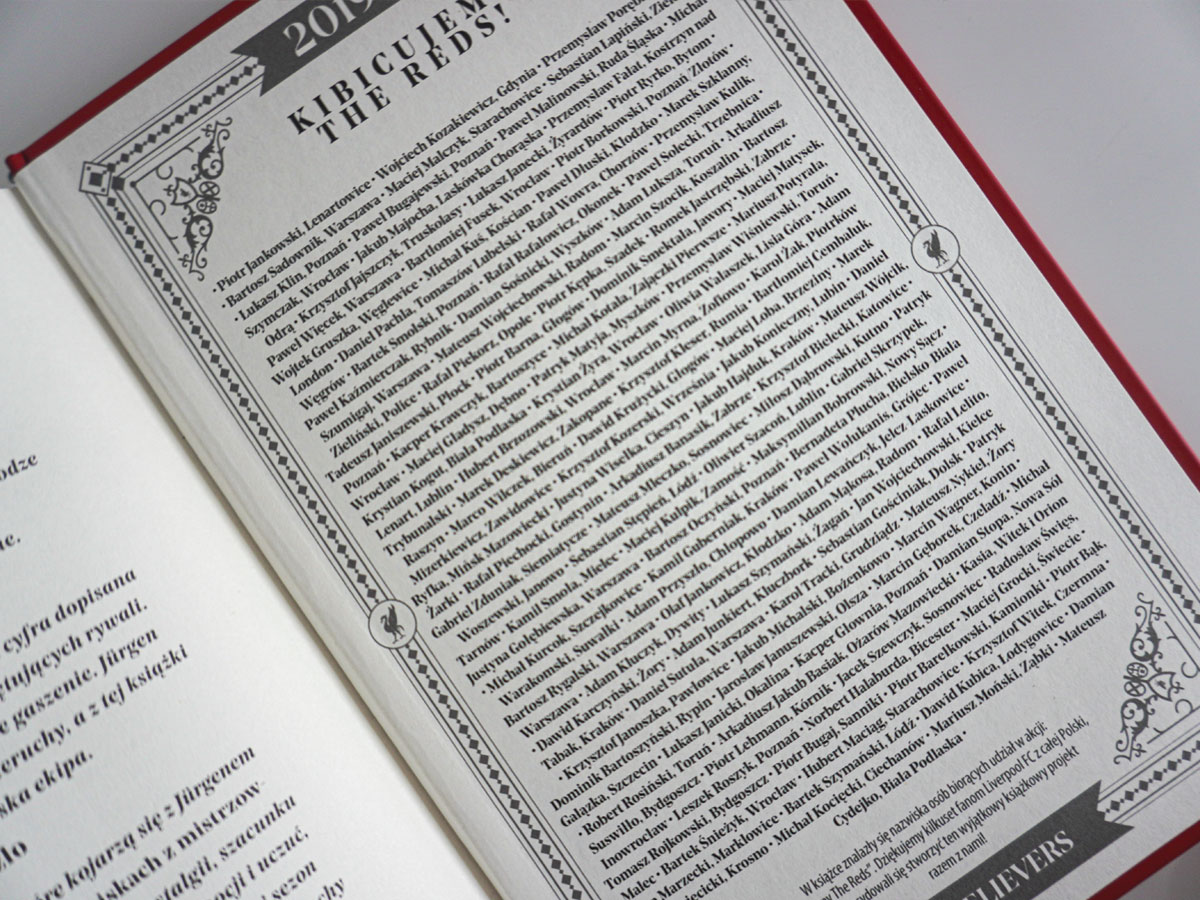 odze
ac.
cyfra dopisana
ętujących rywali.
e gaszenie. Jürgen
eruchy, a z tej książki
ska ekipa.
tóre kojarzą się z Jürgenem
skach z mistrzow-
stalgii, szacunku
ocji i uczuć,
sezon
chy
2019
KIBICUJEMY
THE REDS!
Piotr Jankowski, Lenartowice · Wojciech Kozakiewicz, Gdynia · Przemysław
· Bartosz Sadownik, Warszawa · Maciej Malczyk, Starachowice · Sebastian Łapiński,
· Łukasz Klin, Poznań · Paweł Bugajewski, Poznań · Paweł Malinowski, Ruda Śląska · Michał
Szymczak, Wrocław · Jakub Majocha, Laskówka Choraska · Przemysław Fałat, Kostrzyn nad
Odrą · Krzysztof Jajszczyk, Truskolasy · Łukasz Janecki, Żyrardów · Piotr Ryrko, Bytom ·
Paweł Więcek, Warszawa · Bartłomiej Fusek, Wrocław · Piotr Borkowski, Poznań Złotów ·
Wojtek Gruszka, Węglewice · Michał Kuś, Kościan · Paweł Dłuski, Kłodzko · Marek Szklanny,
London · Daniel Pachla, Tomaszów Lubelski · Rafał Wowra, Chorzów · Przemysław Kulik,
Węgrów · Bartek Smolski, Poznań · Rafał Rafałowicz, Okonek · Paweł Solecki, Trzebnica ·
Paweł Kaźmierczak, Rybnik · Damian Sośnicki, Wyszków · Adam Luksza, Toruń · Arkadiusz
Szumigaj, Warszawa · Mateusz Wojciechowski, Radom · Marcin Szocik, Koszalin · Bartosz
Zieliński, Police · Rafał Piekorz, Opole · Piotr Kępka, Szadek · Romek Jastrzębski, Zabrze
Tadeusz Janiszewski, Płock · Piotr Barna, Głogów · Dominik Smektała, Jawory · Maciej Matysek,
Poznań · Kacper Krawczyk, Bartoszyce · Michał Kotala, Zajączki Pierwsze · Mariusz Potyrała,
Wrocław · Maciej Gładysz, Dębno · Patryk Matyja, Myszków · Przemysław Wiśniewski, Toruń ·
Krystian Kogut, Biała Podlaska · Krystian Żyra, Wrocław · Oliwia Walaszek, Lisia Góra · Adam
Lenart, Lublin · Hubert Brzozowski, Wrocław · Marcin Myrna, Zaflowo · Karol Żak, Piotrków
Trybunalski · Marek Deskiewicz, Zakopane · Krzysztof Klesyz, Rumia · Bartłomiej Cembaluk
Raszyn · Marco Wilczek, Bieruń · Dawid Krużycki, Głogów · Maciej Loba, Brzeziny · Marek
Mizerkiewicz, Zawidowice · Krzysztof Kozerski, Września · Jakub Konieczny, Lubin · Daniel
Ryfka, Mińsk Mazowiecki · Justyna Wisełka, Cieszyn · Jakub Hajduk, Kraków · Mateusz Wójcik,
Żarki · Rafał Piechocki, Gostynin · Arkadiusz Banasik, Zabrze · Krzysztof Bielecki, Katowice ·
Gabriel Zduniak, Siemiatycze · Mateusz Mleczko, Sosnowiec · Miłosz Dąbrowski, Kutno · Patryk
Waszewski, Janowo · Sebastian Stępień, Łódź · Oliwier Szacoń, Lublin · Gabriel Skrzypek,
Tarnów · Kamil Smoła, Mielec · Maciej Kulpik, Zamość · Maksymilian Bobrowski, Nowy Sącz ·
Justyna Gołębiewska, Warszawa · Bartosz Oczyński, Poznań · Bernadetta Plucha, Bielsko Biała
· Michał Kurcok, Szczejkowice · Kamil Guberniak, Kraków · Paweł Wołukanis, Grójec · Paweł
Warakomski, Suwałki · Adam Przyszło, Chłopowo · Damian Lewańczyk, Jelcz Laskowice ·
Bartosz Rygalski, Warszawa · Olaf Jankowicz, Kłodzko · Adam Mąkosa, Radom · Rafał Lelito,
Warszawa · Adam Kluczyk, Dywity · Łukasz Szymański, Żagań · Jan Wojciechowski, Kielce
· Dawid Karczyński, Żory · Adam Junkiert, Kluczbork · Sebastian Gościniak, Dolsk · Patryk
Tabak, Kraków · Daniel Sutuła, Warszawa · Karol Tracki, Grudziądz · Mateusz Nykiel, Żory
· Krzysztof Janoszka, Pawłowice · Jakub Michalski, Bożenkowo · Marcin Wagner, Konin ·
Dominik Bartoszyński, Rypin · Jarosław Januszewski, Olsza · Marcin Gęborek, Czeladź · Michał
Gałązka, Szczecin · Łukasz Janicki, Okalina · Kacper Głownia, Poznań · Damian Stopa, Nowa Sól
· Robert Rosiński, Toruń · Arkadiusz Jakub Basiak, Ożarów Mazowiecki · Kasia, Witek i Orion
Suswiłło, Bydgoszcz · Piotr Lehmann, Kórnik · Jacek Szewczyk, Sosnowiec · Radosław Święs,
Inowrocław · Leszek Roszyk, Poznań · Norbert Hałaburda, Bicester · Maciej Grocki, Świecie ·
Tomasz Rojkowski, Bydgoszcz · Piotr Bugaj, Sanniki · Piotr Barełkowski, Kamionki · Piotr Bąk,
Malec · Bartek Śnieżyk, Wrocław · Hubert Maciąg, Starachowice · Krzysztof Witek, Czermna ·
Marzecki, Marklowice · Bartek Szymański, Łódź · Dawid Kubica, Łodygowice · Damian
ięcicki, Krosno · Michał Kocięcki, Ciechanów · Mariusz Moński, Ząbki · Mateusz
Cydejko, Biała Podlaska ·
W książce znalazły się nazwiska osób biorących udział w akcji:
y The Reds". Dziękujemy kilkuset fanom Liverpool FC z całej Polski,
ydowali się stworzyć ten wyjątkowy książkowy projekt
razem z nami!
ELIEVERS